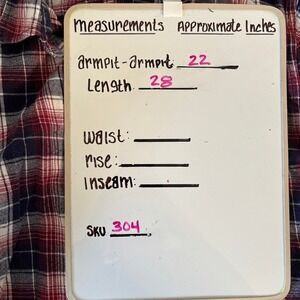 measurements Approximate Inches
armpit-armpit 22
Length 28
waist:
rise:
Inseam:
SKU 304